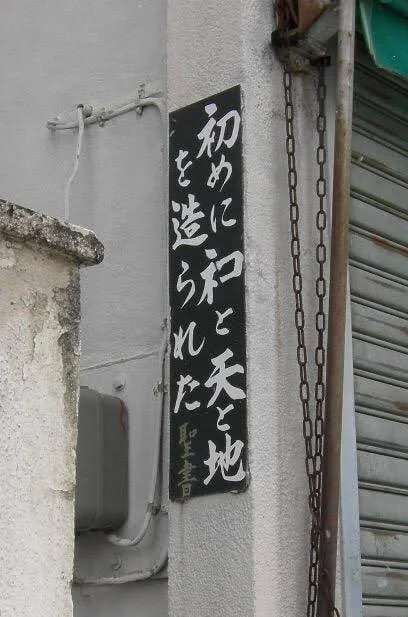 初めにネコと天と地
を造られた 聖書